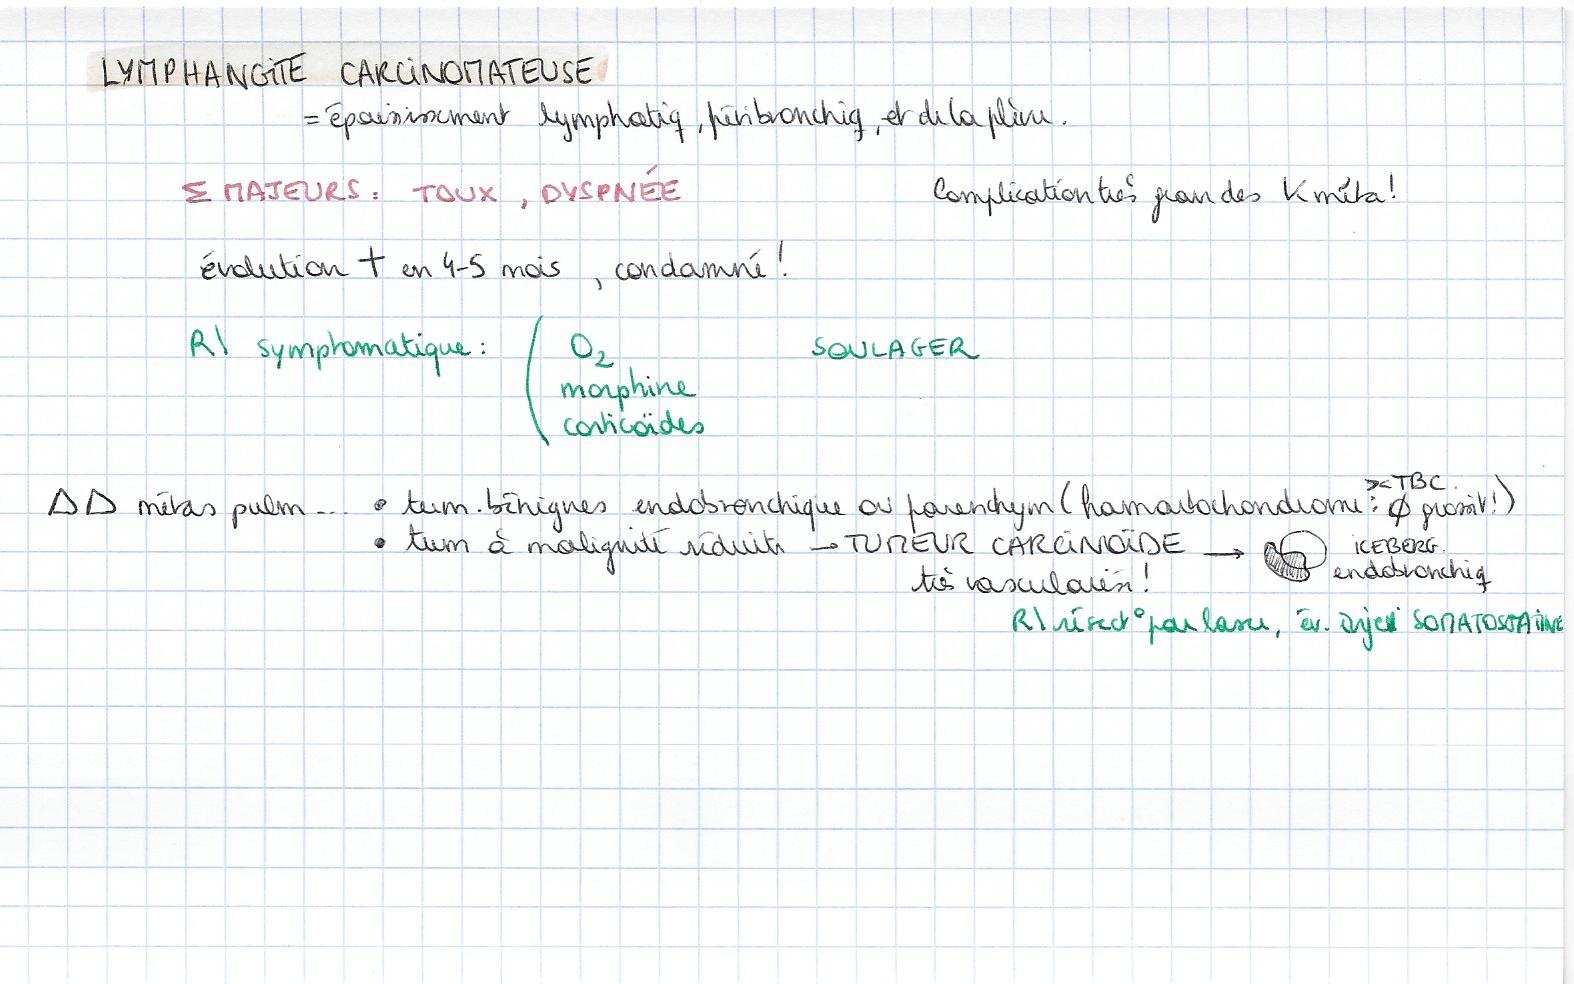 LYMPHANGITE CARCINOMATEUSE
= épaississement lymphatiq, péribronchiq, et de la plèvre.
Σ MAJEURS : TOUX, DYSPNÉE
Complication très grave des K méta!
évolution † en 4-5 mois, condamné!
R\ symptomatique : O₂ SOULAGER
morphine
corticoïdes
ΔΔ métas pulm... • tum. bénignes endobronchique ou parenchym (hamartochondrome : ∅ grossit!)
>< TBC.
• tum à malignité réduite → TUMEUR CARCINOÏDE → ICEBERG.
endobronchiq
très vascularisé!
R\ résect° par laser, év. inject SOMATOSTATINE